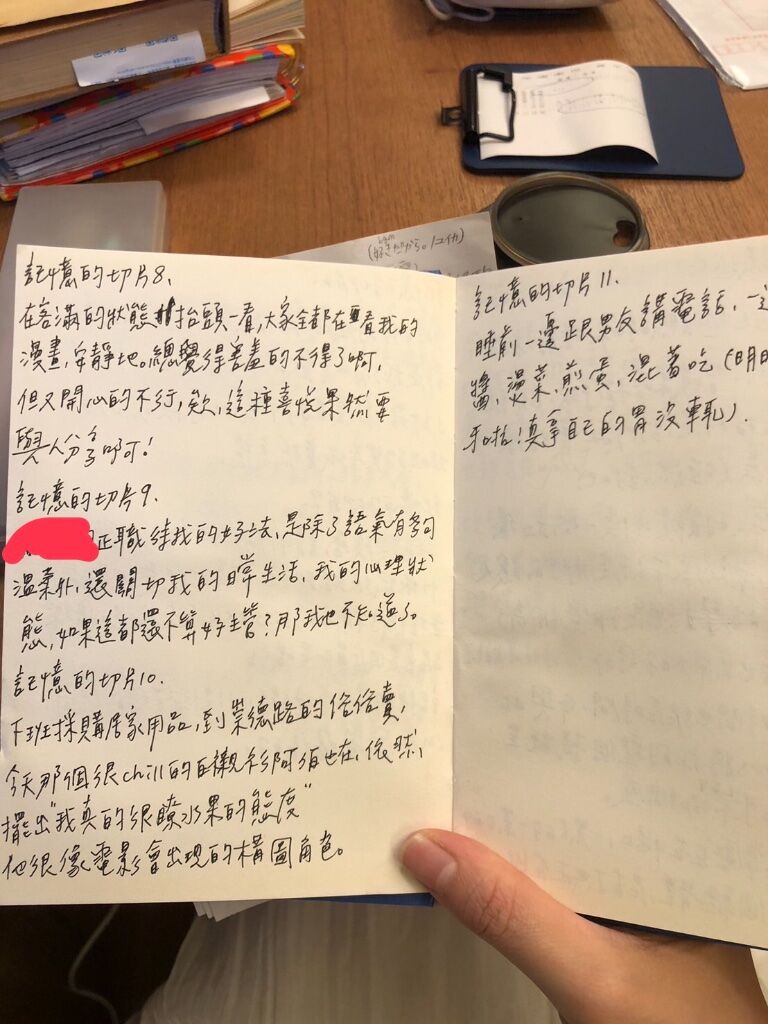 記憶的切片8、
在客滿的狀態抬頭一看,大家全都在看我的
漫畫,安靜地。總覺得害羞的不得了啊,
但又開心的不行,欸,這種喜悅果然要
與人分享啊!
記憶的切片9.
正職待我的好法,是除了語氣有夠
溫柔外,還關切我的日常生活,我的心理狀
態,如果這都還不算好主管?那我也不知道了。
記憶的切片10.
下班採購居家用品,到崇德路的俗俗賣,
今天那個很chill的白襯衫阿伯也在,依然
擺出"我真的很瞭水果的態度"
他很像電影會出現的構圖角色。
記憶的切片11.
睡前一邊跟男友講電話,一邊
醬,燙菜、煎蛋,混著吃(明明
牙啦!真拿自己的胃沒輒).